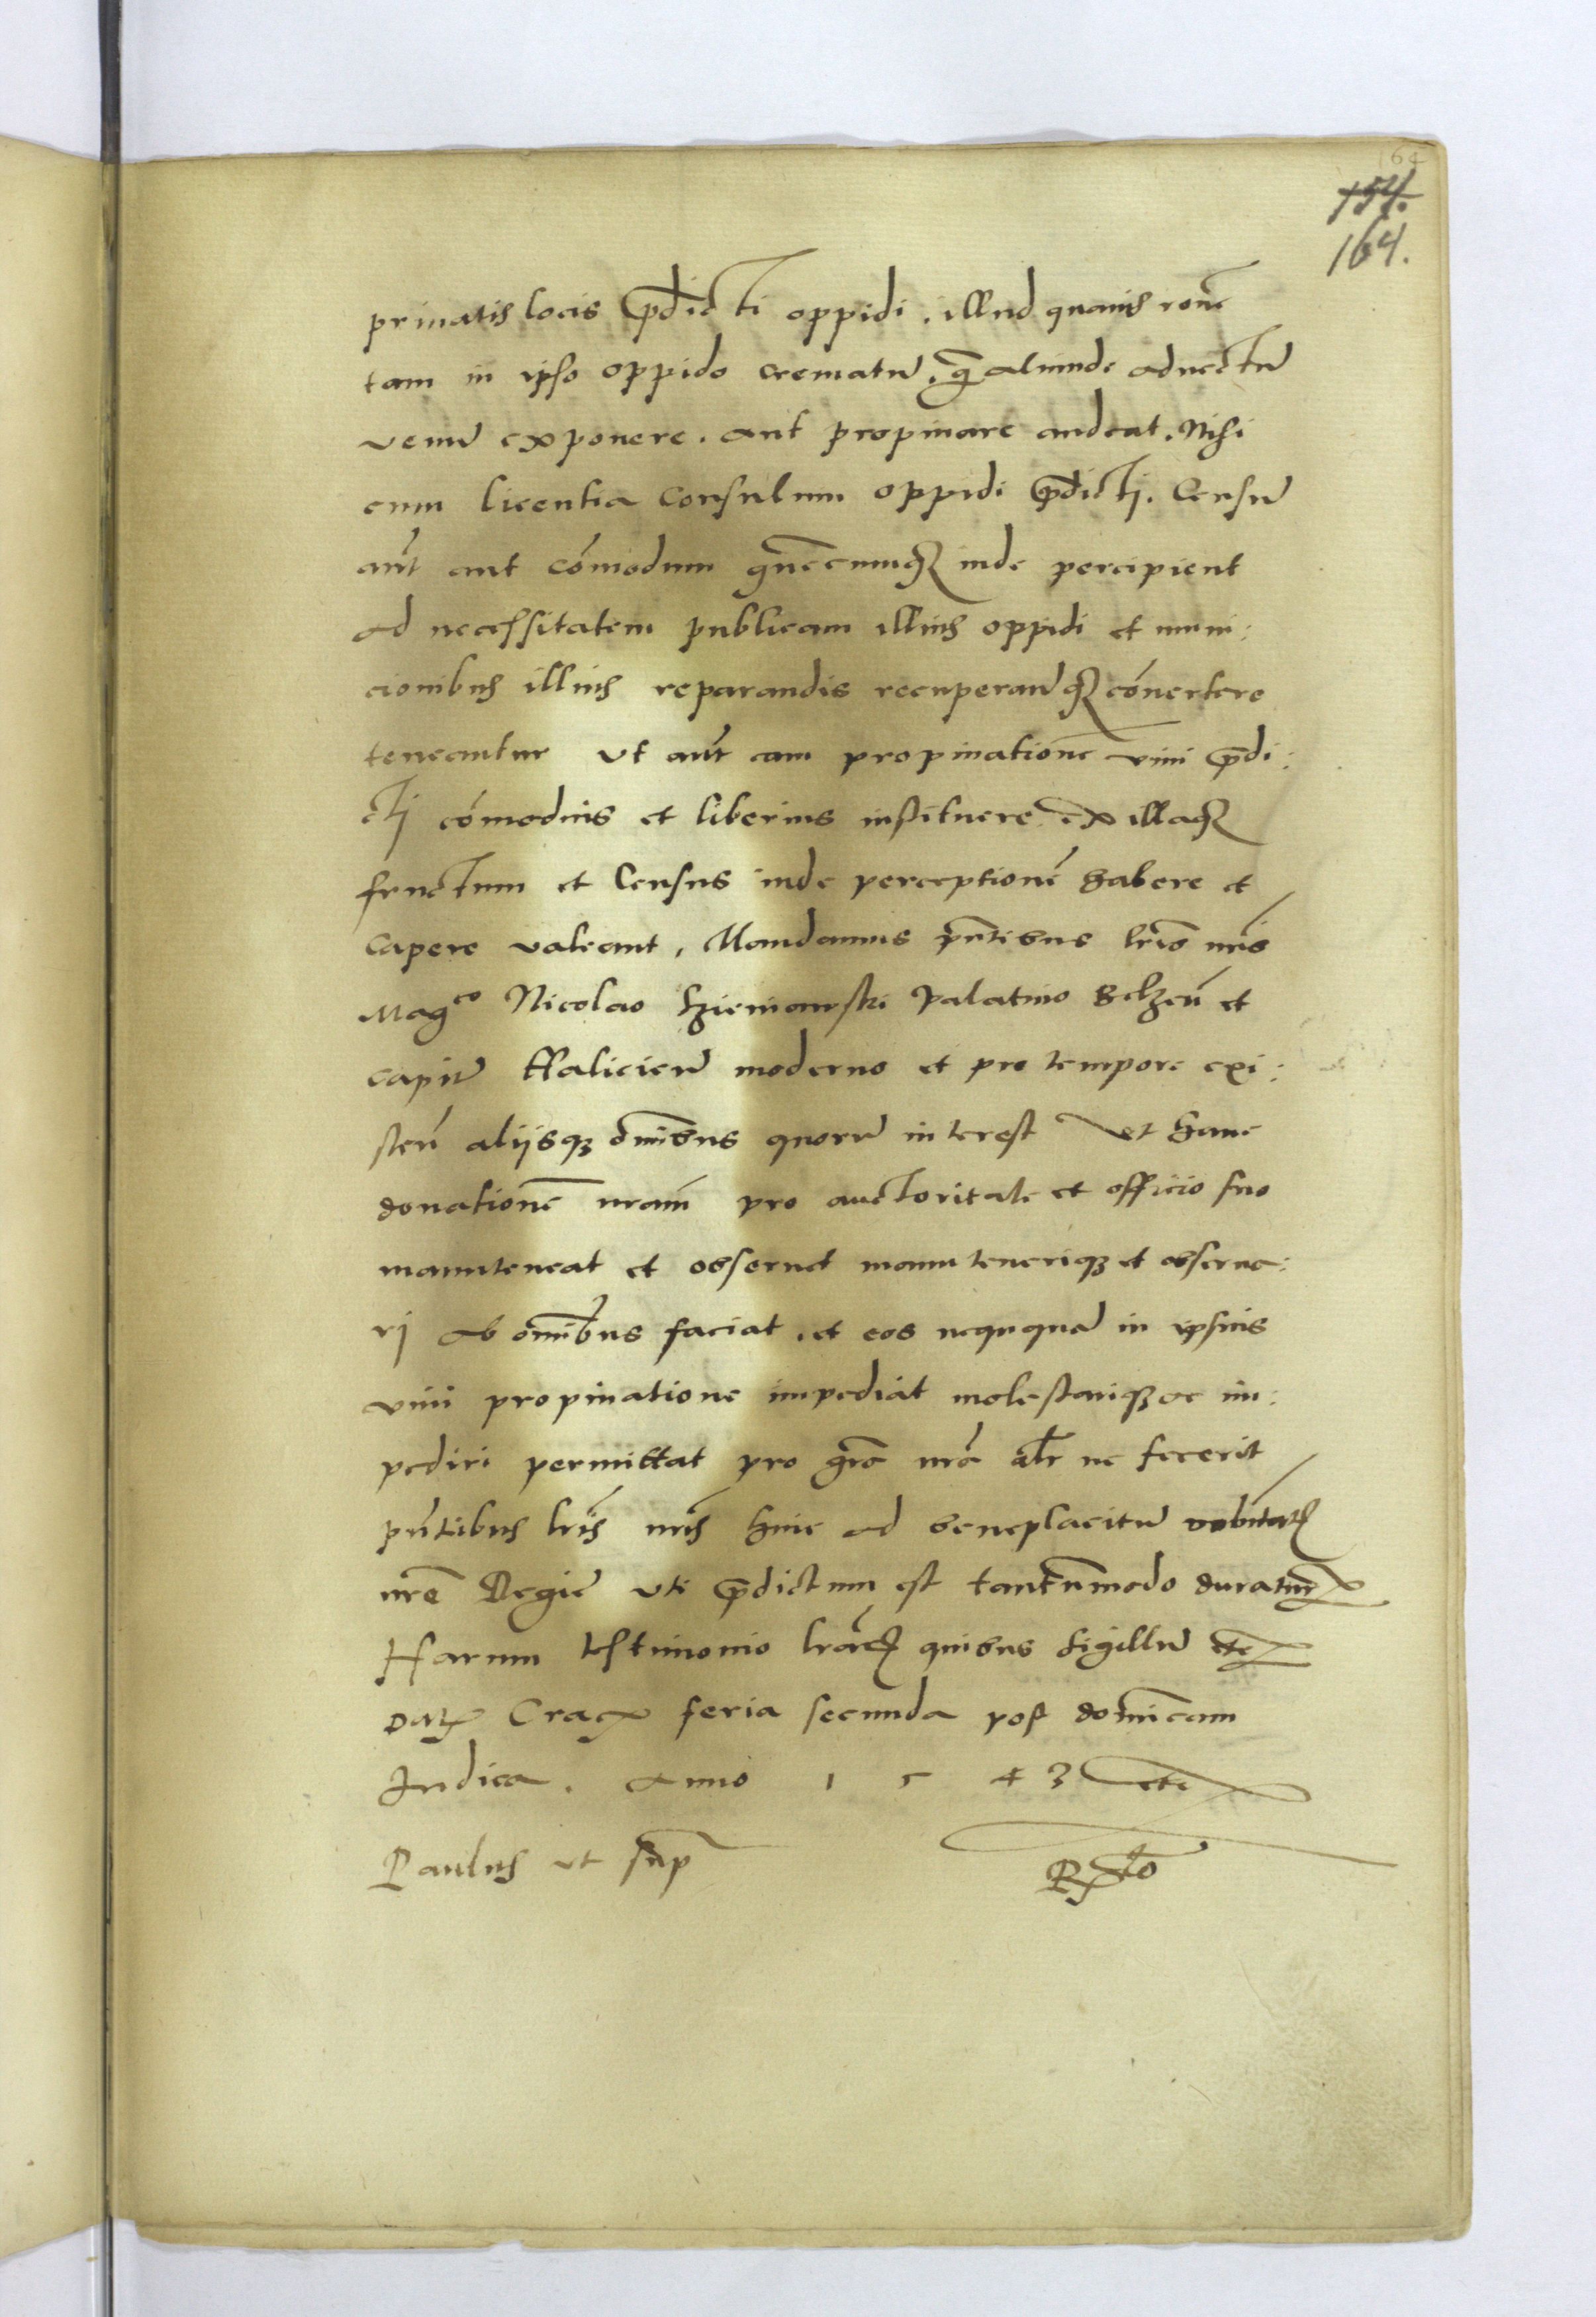 164
154.
164.
priuatis locis p̄dicti oppidi. illud quauis rōne
tam in ipso oppido crematū. q̄ aliunde aduectū
venū exponere. aut propinare audeat. Nisi
cum licentia Consulum oppidi p̄dictj. Censū
aūt aut cōmodum quēcumqꝫ inde percipient
ad necessitatem publicam illius oppidi et muni:
cionibus illius reparandis recuperandqꝫ cōuertere
teneantur vt aūt eam propinationē vini p̄di:
ctj cōmodius et liberius instituere. ex illaqꝫ
fructum et Census inde perceptionē habere et
capere valeant. Mandamus pn̄tibus lrīs nrīs
Magco Nicolao Szieniawski Palatino Belzeñ et
capitū Haliciecñ moderno et pro tempore exi:
steñ alijsqꝫ om̄ibus quorū interest vt hanc
donationē nrām pro auctoritate et officio suo
manuteneat et obseruet manutenerique et obserua:
rj ab om̄ibus faciat. et eos nequaquā in ipsius
vini propinatione impediat molestariqꝫ ac im:
pediri permittat pro grā nrā alr̄ ne fecerit
pn̄tibus lrīs nrīs hinc ad beneplacitū volūtatꝭ
nrē Regiē vti p̄dictum est tantūmodo duraturꝭ
Harum testimonio lrārꝫ quibus sigillū etc
Datꝭ Cracꝭ feria secunda post dominicam
Iudica. Anno 1 5 43 etc
Paulus vt sup̄
Rꝭto